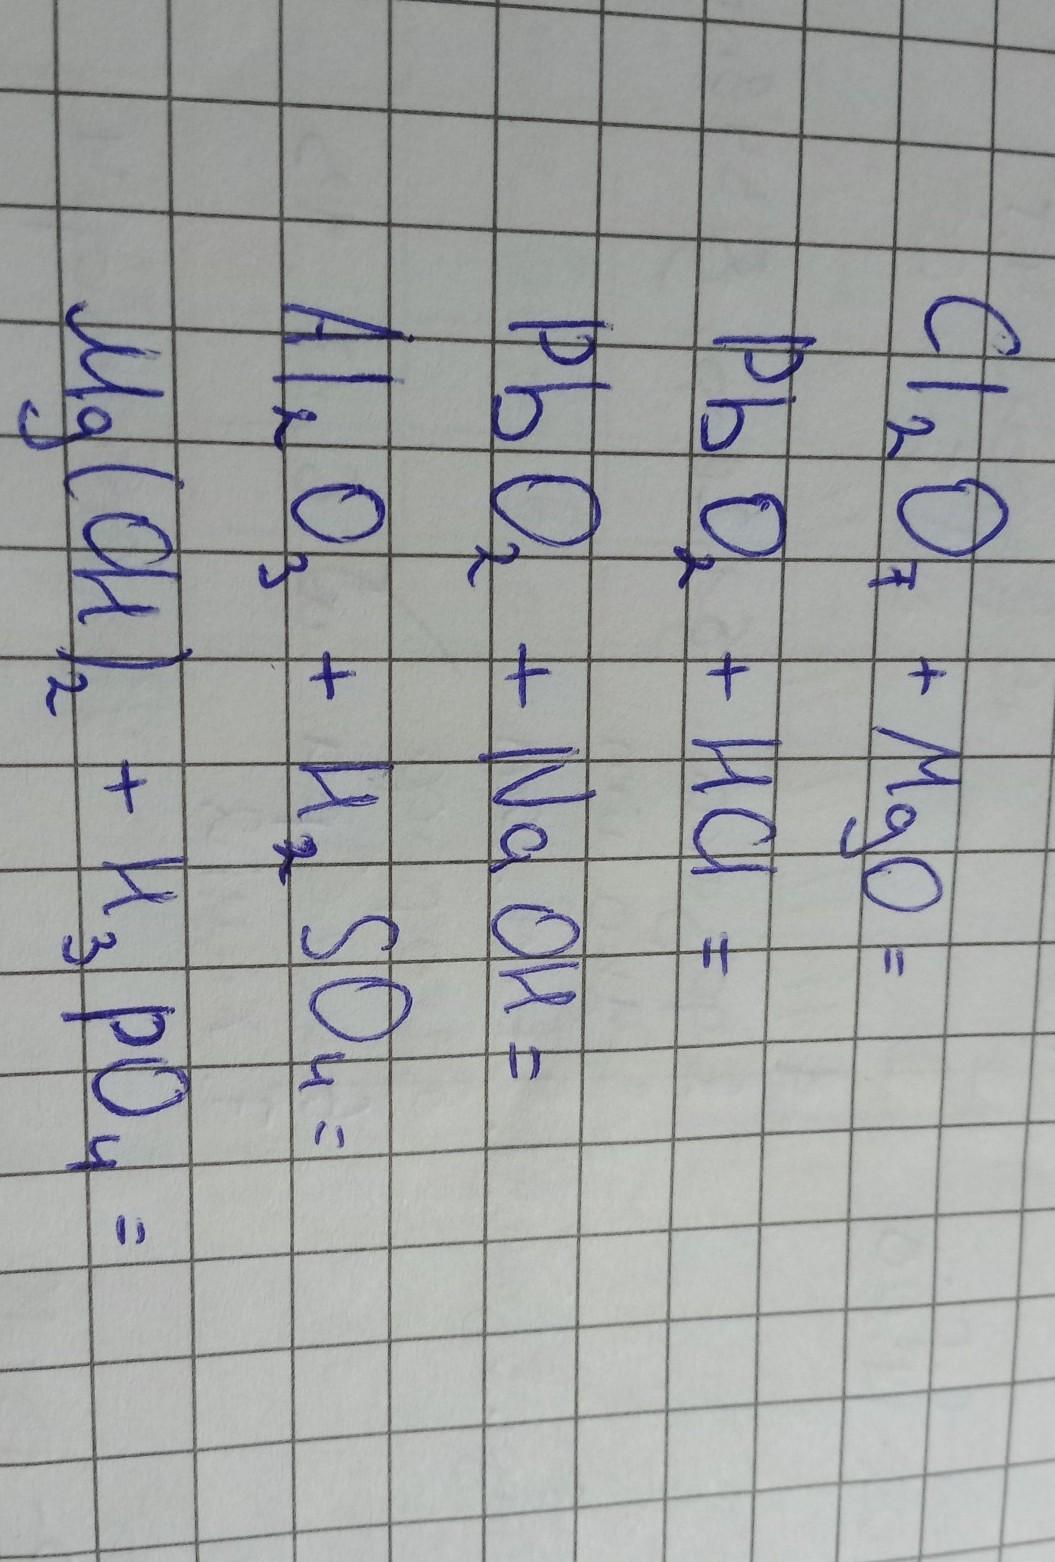 Cl₂O₇ + MgO =
PbO₂ + HCl =
PbO₂ + NaOH =
Al₂O₃ + H₂SO₄ =
Mg(OH)₂ + H₃PO₄ =